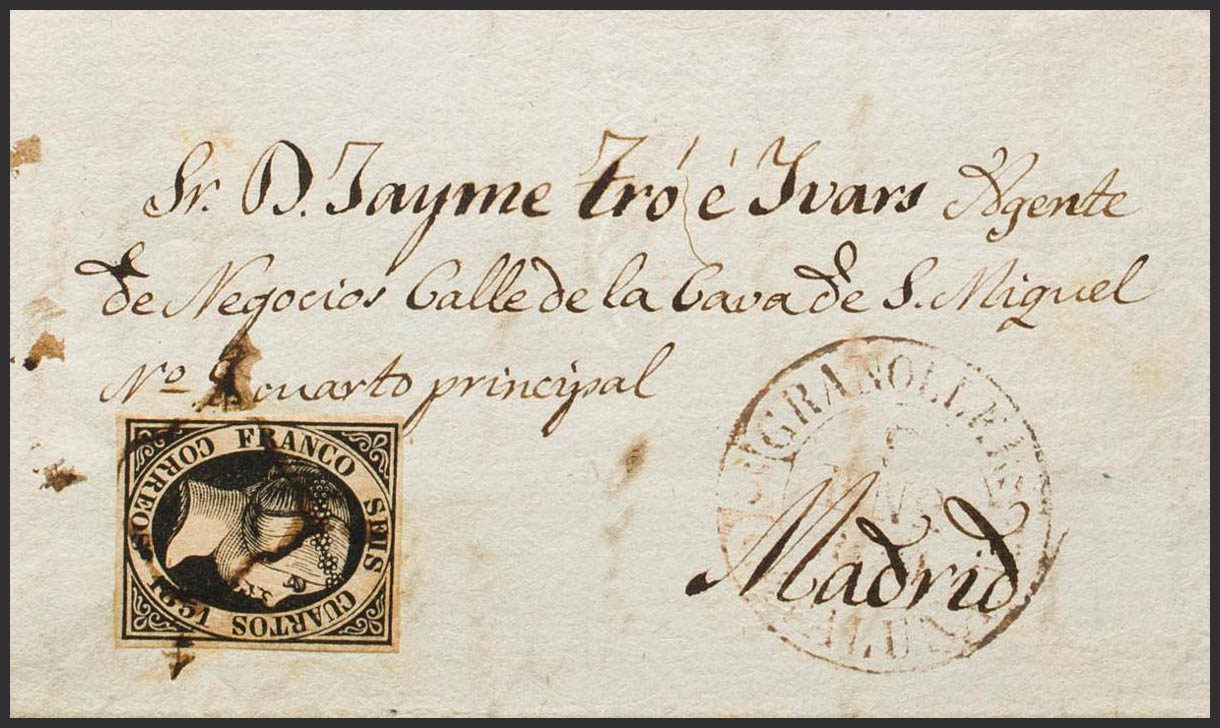 Sr. D. Jayme Tró é Ivars Agente
de Negocios Calle de la Cava de S. Miguel
Nº cuarto principal
Madrid
CORREOS FRANCO SEIS CUARTOS 1851
GRANOLLERS